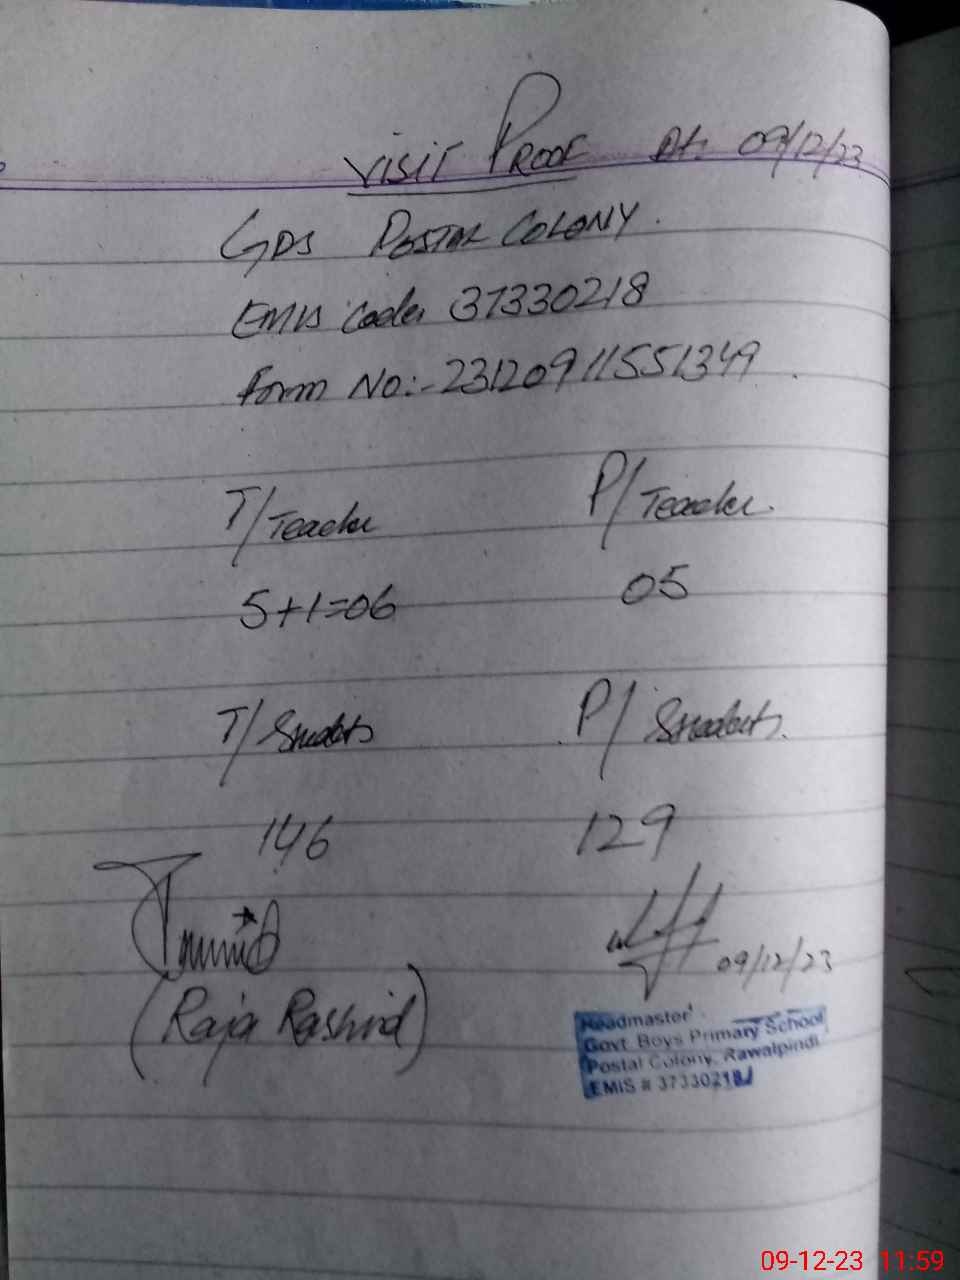 VISIT PROOF Dt: 09/12/23
GPS POSTAL COLONY.
EMIS Code: 37330218
Form No:- 23120911551349
T/Teacher P/Teacher.
5+1=06 05
T/Students P/Students.
146 129
09/12/23
(Raja Rashid)
Headmaster
Govt. Boys Primary School
Postal Colony, Rawalpindi
EMIS # 37330218
09-12-23 11:59